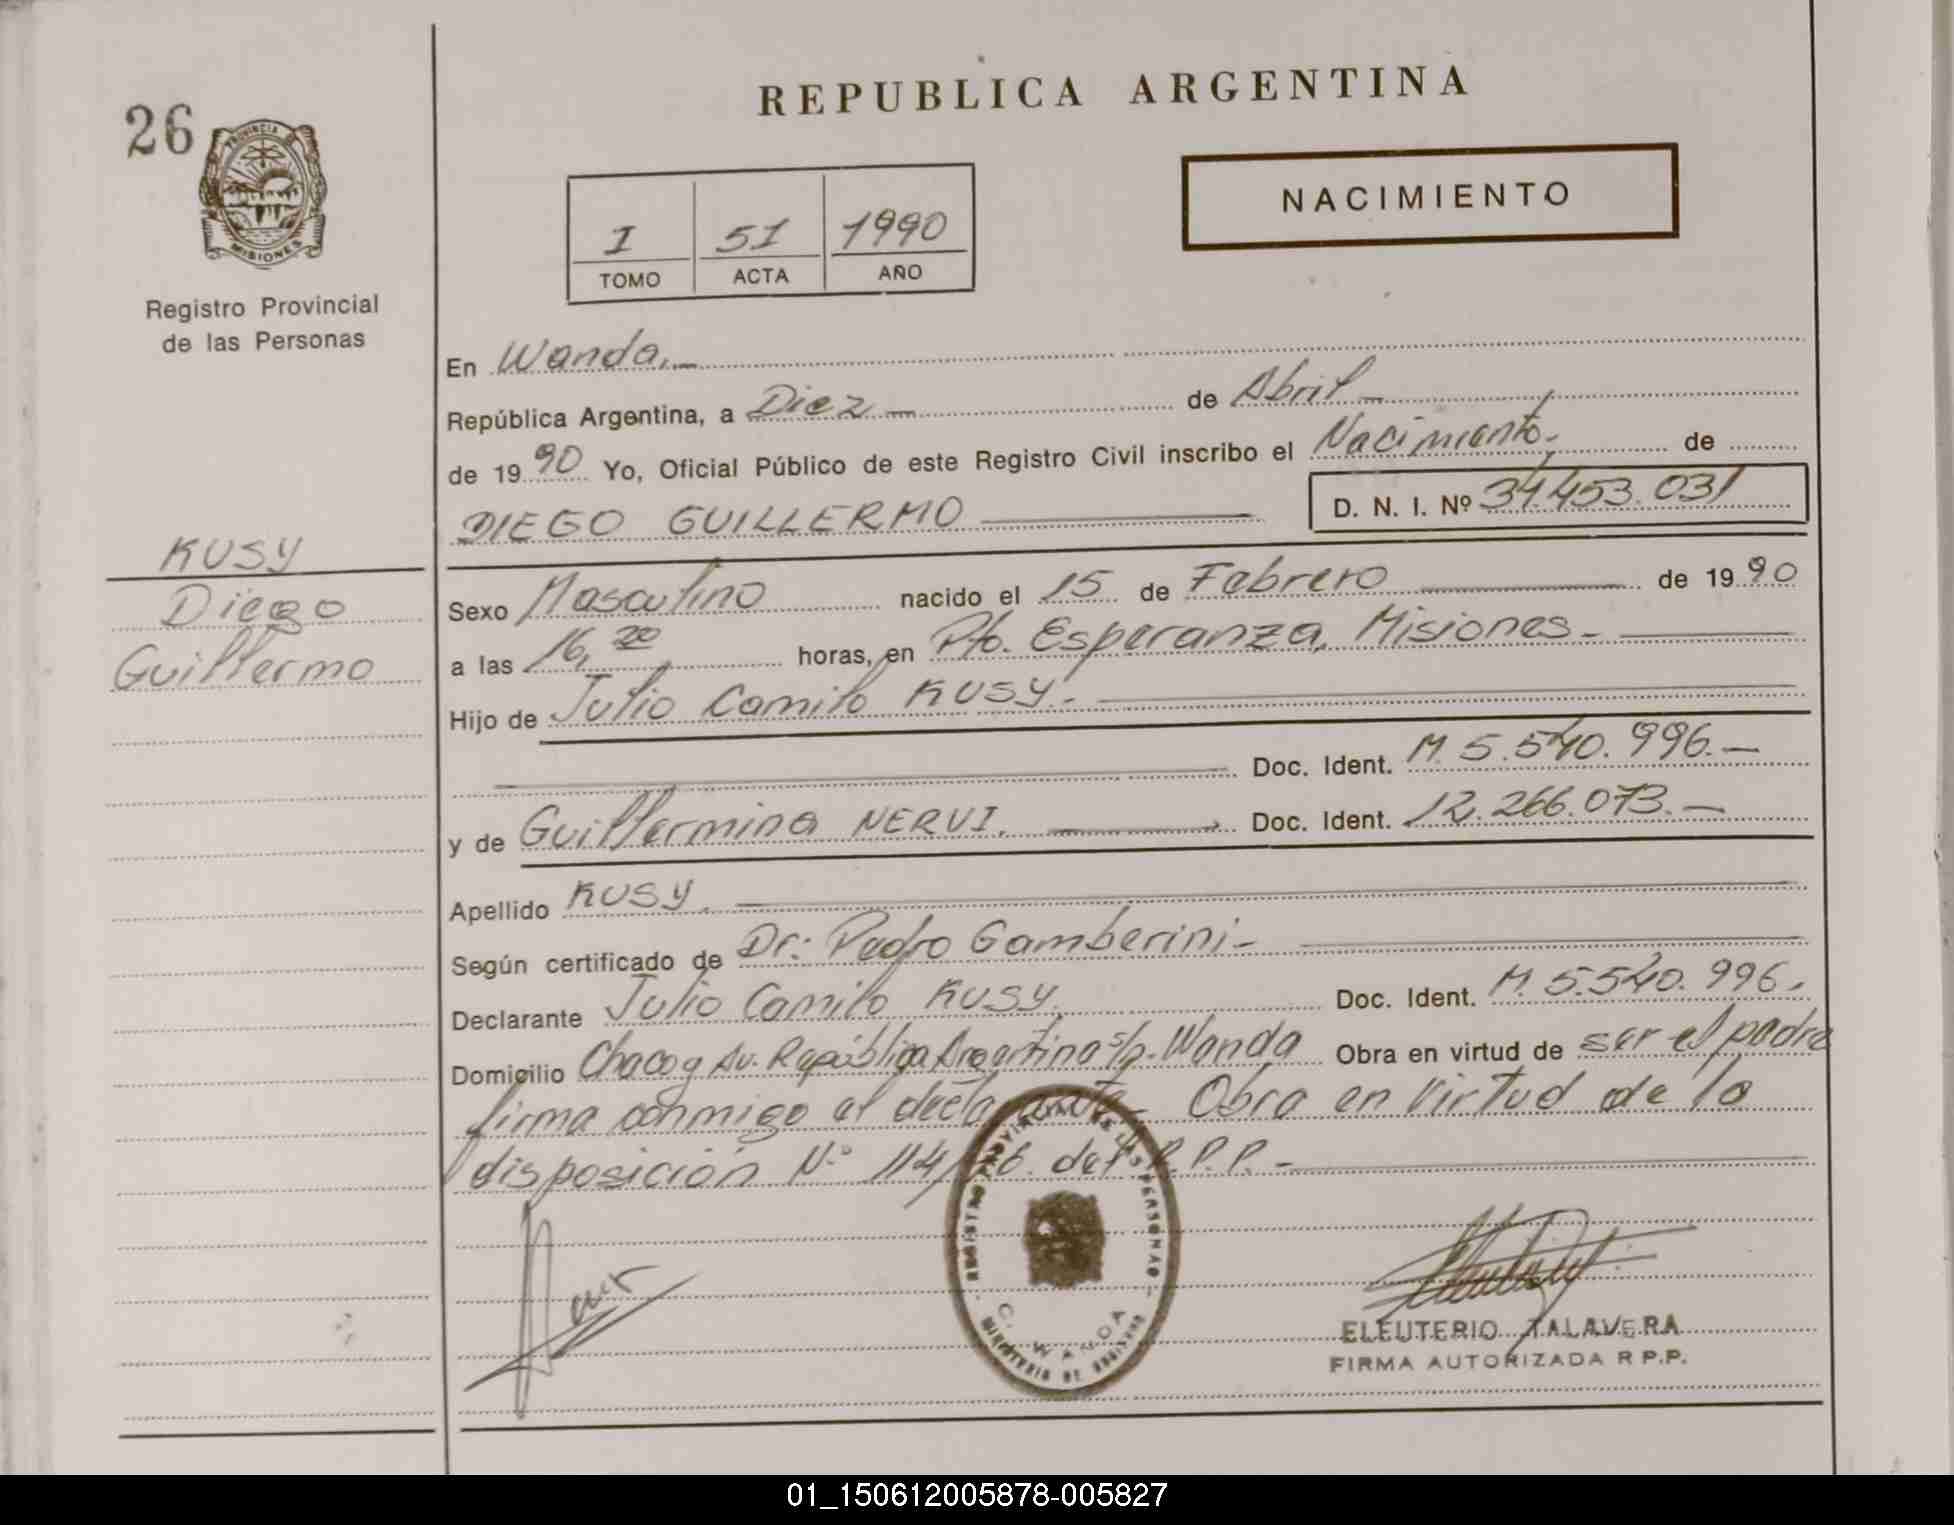 REPUBLICA ARGENTINA
26
PROVINCIA DE
MISIONES
Registro Provincial
de las Personas
I 51 1990
TOMO ACTA AÑO
NACIMIENTO
En Wanda.—
República Argentina, a Diez — de Abril —
de 1990 Yo, Oficial Público de este Registro Civil inscribo el Nacimiento. de
DIEGO GUILLERMO D. N. I. Nº 34.453.031
KUSY
Diego
Guillermo
Sexo Masculino nacido el 15 de Febrero de 1990
a las 16,20 horas, en Pto. Esperanza, Misiones.-
Hijo de Julio Camilo KUSY.-
Doc. Ident. M. 5.540.996.—
y de Guillermina NERVI. Doc. Ident. 12.266.073.—
Apellido KUSY.
Según certificado de Dr: Pedro Gamberini-
Declarante Julio Camilo KUSY. Doc. Ident. M. 5.540.996.
Domicilio Chaco y Av. República Argentina s/n. Wanda Obra en virtud de ser el padre
firma conmigo el declarante- Obra en virtud de la
disposición Nº 114/ del R.P.P.-
REGISTRO PROVINCIAL DE LAS PERSONAS
WANDA
MINISTERIO DE GOBIERNO
ELEUTERIO TALAVERA
FIRMA AUTORIZADA R P.P.
01_150612005878-005827